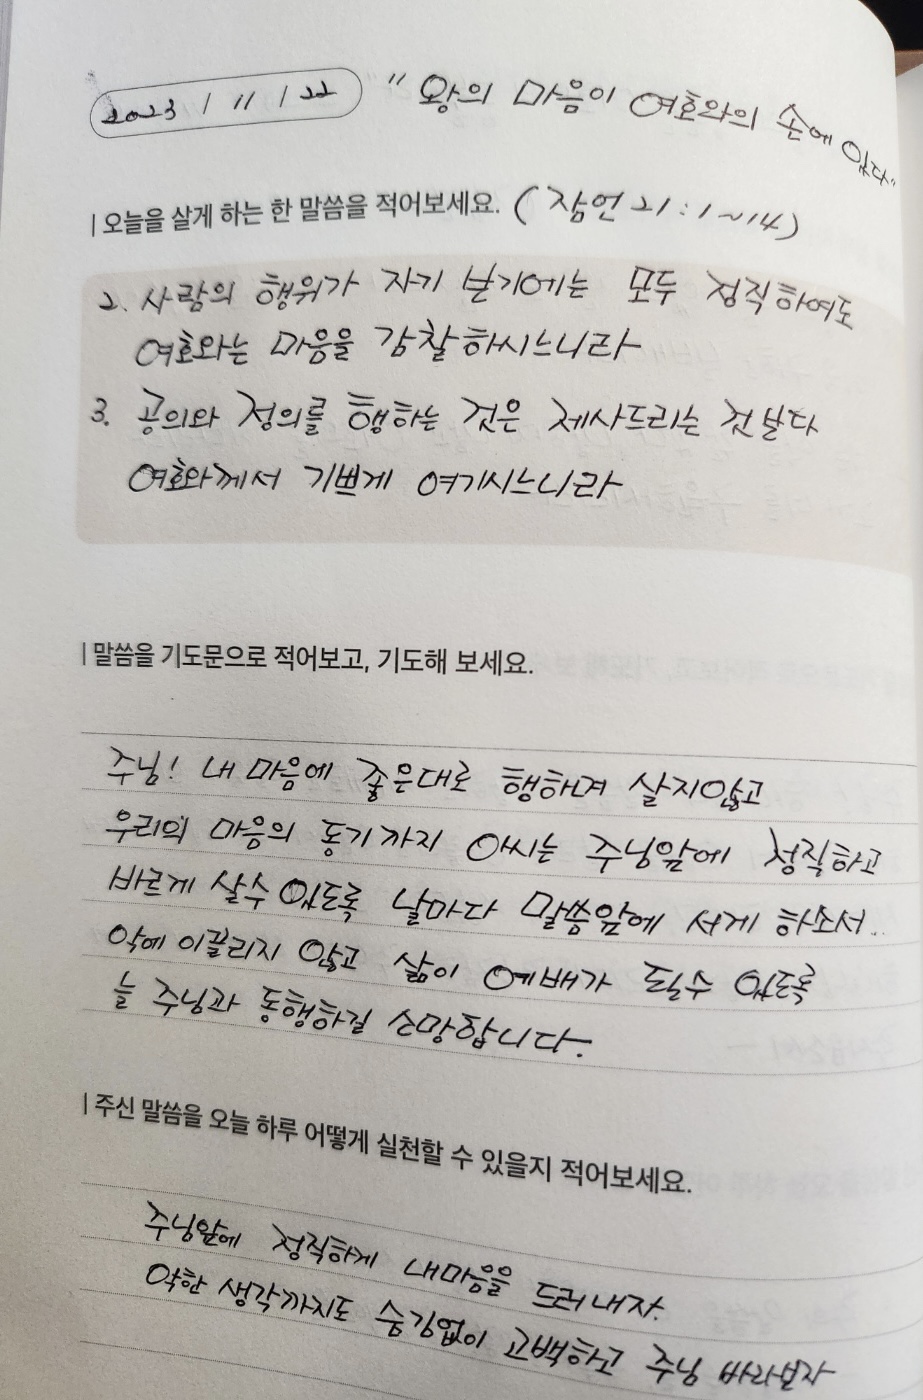 2023 / 11 / 22 " 왕의 마음이 여호와의 손에 있다"
| 오늘을 살게 하는 한 말씀을 적어보세요. (잠언 21:1~14)
2. 사람의 행위가 자기 보기에는 모두 정직하여도
여호와는 마음을 감찰하시느니라
3. 공의와 정의를 행하는 것은 제사드리는 것보다
여호와께서 기쁘게 여기시느니라
| 말씀을 기도문으로 적어보고, 기도해 보세요.
주님! 내 마음에 좋은대로 행하며 살지않고
우리의 마음의 동기까지 아시는 주님앞에 정직하고
바르게 살수 있도록 날마다 말씀앞에 서게 하소서..
악에 이끌리지 않고 삶이 예배가 될수 있도록
늘 주님과 동행하길 소망합니다.
| 주신 말씀을 오늘 하루 어떻게 실천할 수 있을지 적어보세요.
주님앞에 정직하게 내마음을 드러내자.
악한 생각까지도 숨김없이 고백하고 주님 바라보자